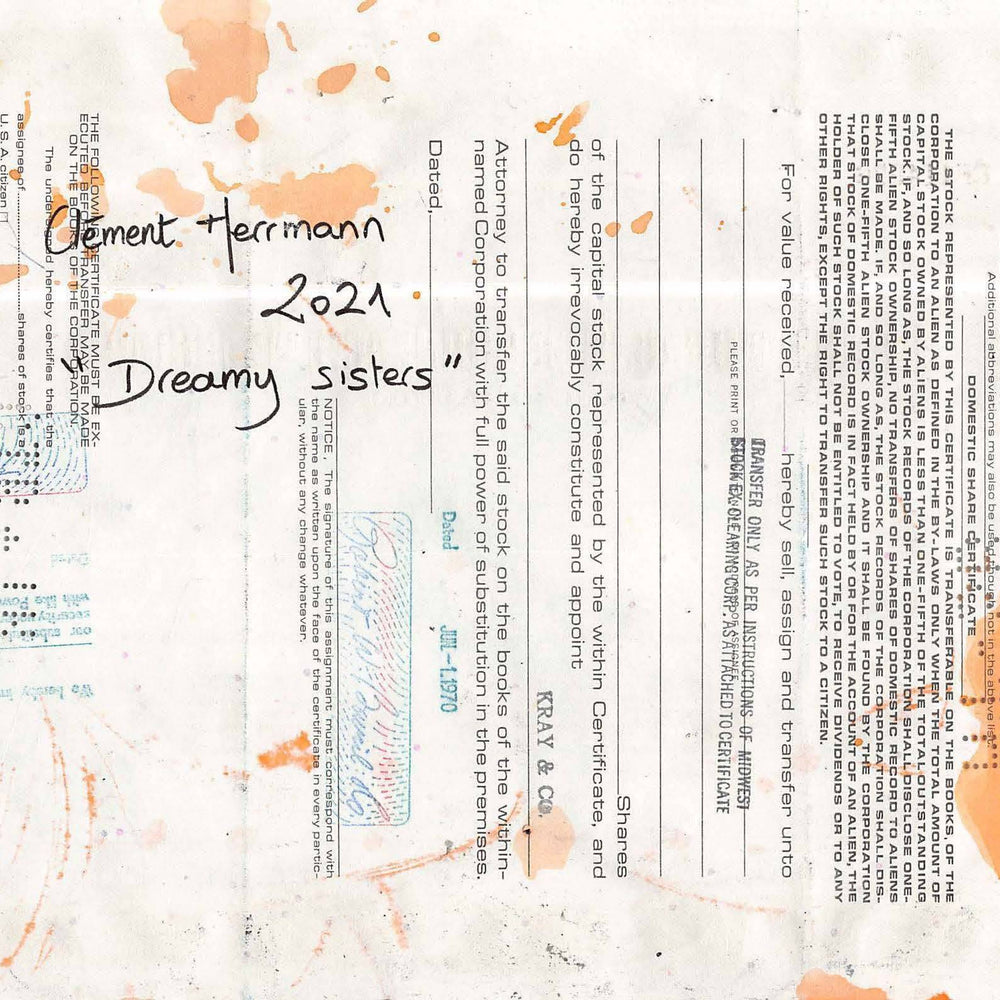 Clément Herrmann
2021
"Dreamy sisters"
Additional abbreviations may also be used though not in the above list.
DOMESTIC SHARE CERTIFICATE
THE STOCK REPRESENTED BY THIS CERTIFICATE IS TRANSFERABLE ON THE BOOKS OF THE
CORPORATION TO AN ALIEN AS DEFINED IN THE BY-LAWS ONLY WHEN THE TOTAL AMOUNT OF
CAPITAL STOCK OWNED BY ALIENS IS LESS THAN ONE-FIFTH OF THE TOTAL OUTSTANDING
STOCK IF, AND SO LONG AS, THE STOCK RECORDS OF THE CORPORATION SHALL DISCLOSE ONE-
FIFTH ALIEN STOCK OWNERSHIP, NO TRANSFERS OF SHARES OF DOMESTIC RECORD TO ALIENS
SHALL BE MADE. IF, AND SO LONG AS, THE STOCK RECORDS OF THE CORPORATION SHALL DIS-
CLOSE ONE-FIFTH ALIEN STOCK OWNERSHIP AND IT SHALL BE FOUND BY THE CORPORATION
THAT STOCK OF DOMESTIC RECORD IS IN FACT HELD BY OR FOR THE ACCOUNT OF AN ALIEN, THE
HOLDER OF SUCH STOCK SHALL NOT BE ENTITLED TO VOTE, TO RECEIVE DIVIDENDS OR TO ANY
OTHER RIGHTS, EXCEPT THE RIGHT TO TRANSFER SUCH STOCK TO A CITIZEN.
For value received, hereby sell, assign and transfer unto
TRANSFER ONLY AS PER INSTRUCTIONS OF MIDWEST
STOCK EX. CLEARING CORP. AS ATTACHED TO CERTIFICATE
PLEASE PRINT OR
Shares
of the capital stock represented by the within Certificate, and
do hereby irrevocably constitute and appoint
KRAY & CO.
Attorney to transfer the said stock on the books of the within-
named Corporation with full power of substitution in the premises.
Dated,
Dated JUL -1. 1970
NOTICE, The signature of this assignment must correspond with
the name as written upon the face of the certificate in every partic-
ular, without any change whatever.
THE FOLLOWING CERTIFICATE MUST BE EX-
ECUTED BEFORE TRANSFER MAY BE MADE
ON THE BOOKS OF THE CORPORATION.
The undersigned hereby certifies that the
assignee of shares of stock is a
U. S. A. citizen